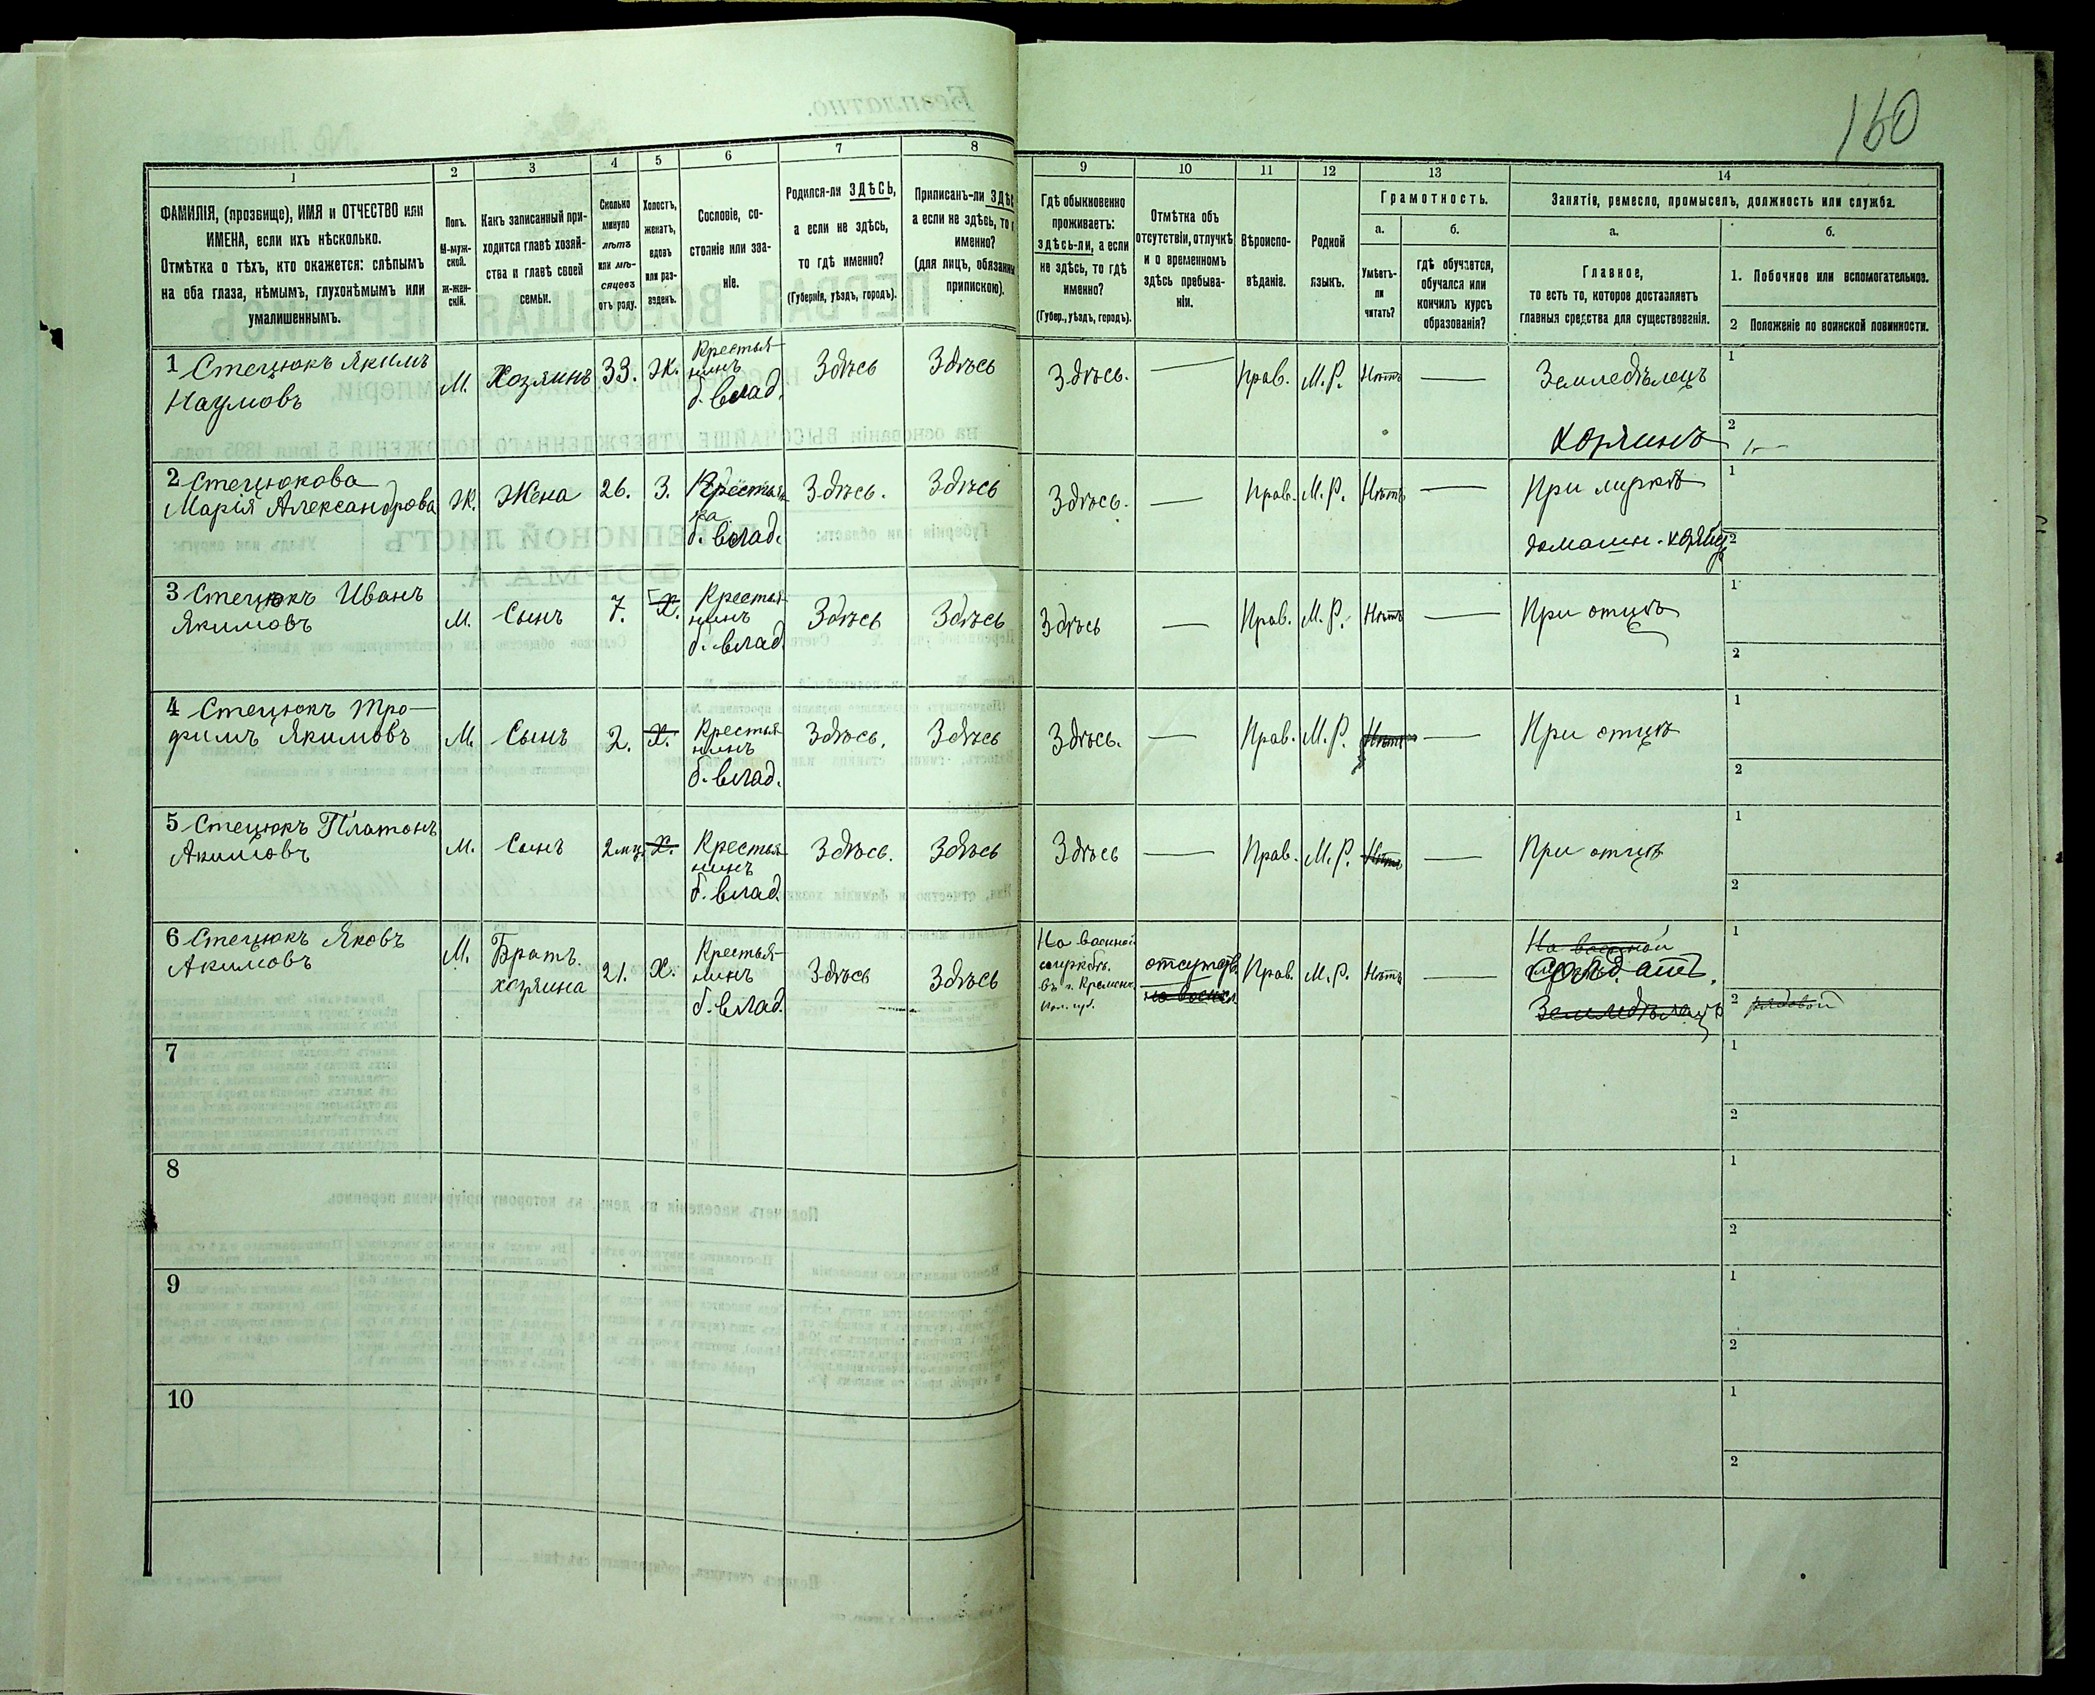 160
1 2 3 4 5 6 7 8 9 10 11 12 13 14
ФАМИЛІЯ, (прозвище), ИМЯ и ОТЧЕСТВО или
ИМЕНА, если ихъ нѣсколько.
Отмѣтка о тѣхъ, кто окажется: слѣпымъ
на оба глаза, нѣмымъ, глухонѣмымъ или
умалишеннымъ.
Полъ.
М-муж-
ской.
Ж-жен-
скій.
Какъ записанный при-
ходится главѣ хозяй-
ства и главѣ своей
семьи.
Сколько
минуло
лѣтъ
или мѣ-
сяцевъ
отъ роду.
Холостъ,
женатъ,
вдовъ
или раз-
веденъ.
Сословіе, со-
стояніе или зва-
ніе.
Родился-ли ЗДѢСЬ,
а если не здѣсь,
то гдѣ именно?
(Губернія, уѣздъ, городъ).
Приписанъ-ли ЗДѢС
а если не здѣсь, то г
именно?
(для лицъ, обязанны
припискою).
Гдѣ обыкновенно
проживаетъ:
здѣсь-ли, а если
не здѣсь, то гдѣ
именно?
(Губер., уѣздъ, городъ).
Отмѣтка объ
отсутствіи, отлучкѣ
и о временномъ
здѣсь пребыва-
ніи.
Вѣроиспо-
вѣданіе.
Родной
языкъ.
Грамотность.
а. б.
Умѣетъ-
ли
читать?
гдѣ обучается,
обучался или
кончилъ курсъ
образованія?
Занятія, ремесло, промыселъ, должность или служба.
а. б.
Главное,
то есть то, которое доставляетъ
главныя средства для существованія.
1. Побочное или вспомогательное.
2 Положеніе по воинской повинности.
1 Стецюкъ Якимъ
Наумовъ
М. Хозяинъ 33. Ж.
Крестья-
нинъ
б. влад.
Здѣсь Здѣсь Здѣсь. — Прав. М.Р. Нѣтъ —
Земледѣлецъ
хозяинъ
1
2
2 Стецюкова
Марія Александрова
Ж. Жена 26. З.
Крестьян
ка
б. влад.
Здѣсь. Здѣсь Здѣсь. — Прав. М.Р. Нѣтъ —
При мужѣ
домашн.
1
2
3 Стецюкъ Иванъ
Якимовъ
М. Сынъ 7. Х.
Крестья-
нинъ
б. влад
Здѣсь Здѣсь Здѣсь — Прав. М.Р. Нѣтъ —
При отцѣ
1
2
4 Стецюкъ Тро-
фимъ Якимовъ
М. Сынъ 2. Х.
Крестья-
нинъ
б. влад.
Здѣсь. Здѣсь Здѣсь. — Прав. М.Р. Нѣтъ —
При отцѣ
1
2
5 Стецюкъ Платонъ
Акимовъ
М. Сынъ 2 мц. Х.
Крестья-
нинъ
б. влад.
Здѣсь. Здѣсь Здѣсь — Прав. М.Р. Нѣтъ —
При отцѣ
1
2
6 Стецюкъ Яковъ
Акимовъ
М. Братъ
хозяина
21. Х.
Крестья-
нинъ
б. влад.
Здѣсь Здѣсь
На военной
службѣ.
въ г. Кременч.
Пол. губ.
отсутств.
на военн
Прав. М.Р. Нѣтъ —
На военной
Солдатъ.
Земледѣлецъ
1
2 рядовой
7 1
2
8 1
2
9 1
2
10 1
2